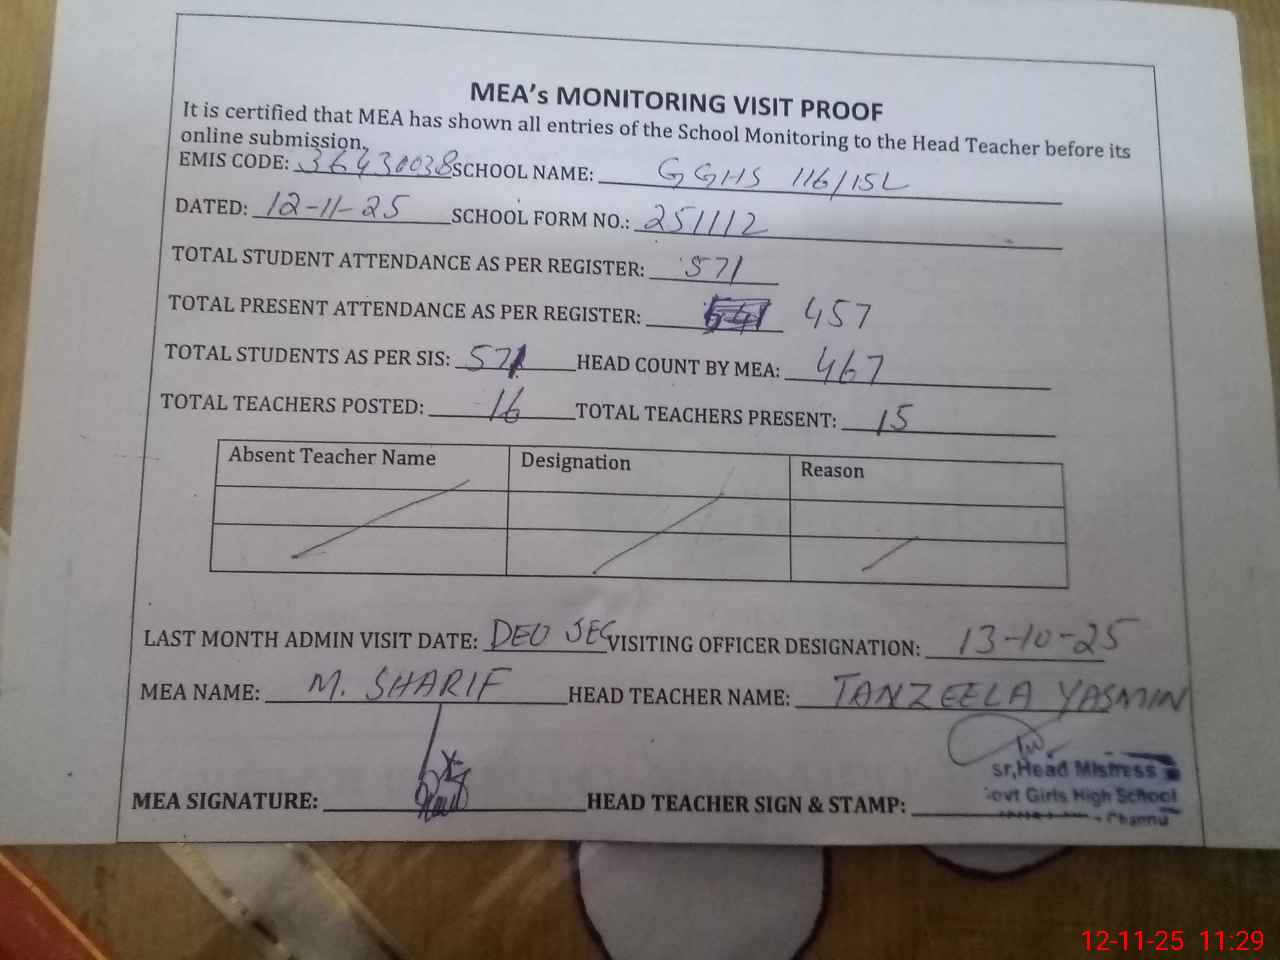 MEA's MONITORING VISIT PROOF
It is certified that MEA has shown all entries of the School Monitoring to the Head Teacher before its
online submission.
EMIS CODE: 36430038 SCHOOL NAME: GGHS 116/15L
DATED: 12-11-25 SCHOOL FORM NO.: 251112
TOTAL STUDENT ATTENDANCE AS PER REGISTER: 571
TOTAL PRESENT ATTENDANCE AS PER REGISTER: 457
TOTAL STUDENTS AS PER SIS: 571 HEAD COUNT BY MEA: 467
TOTAL TEACHERS POSTED: 16 TOTAL TEACHERS PRESENT: 15
Absent Teacher Name Designation Reason
LAST MONTH ADMIN VISIT DATE: DEO SEC VISITING OFFICER DESIGNATION: 13-10-25
MEA NAME: M. SHARIF HEAD TEACHER NAME: TANZEELA YASMIN
sr,Head Mistress
Govt Girls High School
MEA SIGNATURE: HEAD TEACHER SIGN & STAMP:
12-11-25 11:29